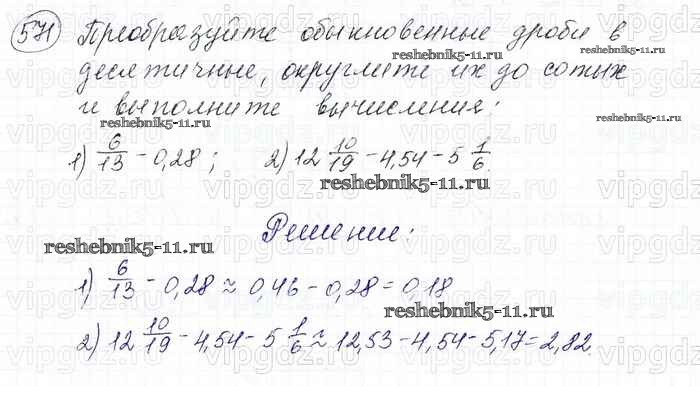 571 Преобразуйте обыкновенные дроби в
десятичные, округлите их до сотых
и выполните вычисления:
1) 6/13 - 0,28; 2) 12 10/19 - 4,54 - 5 1/6.
Решение:
1) 6/13 - 0,28 ≈ 0,46 - 0,28 = 0,18
2) 12 10/19 - 4,54 - 5 1/6 ≈ 12,53 - 4,54 - 5,17 = 2,82.
reshebnik5-11.ru
reshebnik5-11.ru
reshebnik5-11.ru
reshebnik5-11.ru
reshebnik5-11.ru
reshebnik5-11.ru
vipgdz.ru